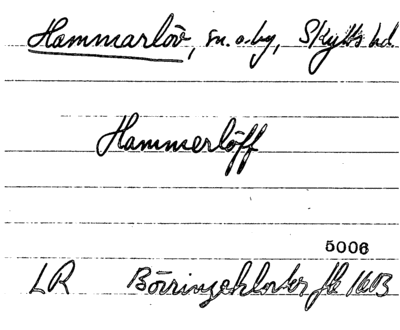 Hammarlöv, sn. o. by, Skytts hd
Hammerlöff
5006
LR Börringekloster jb 1603